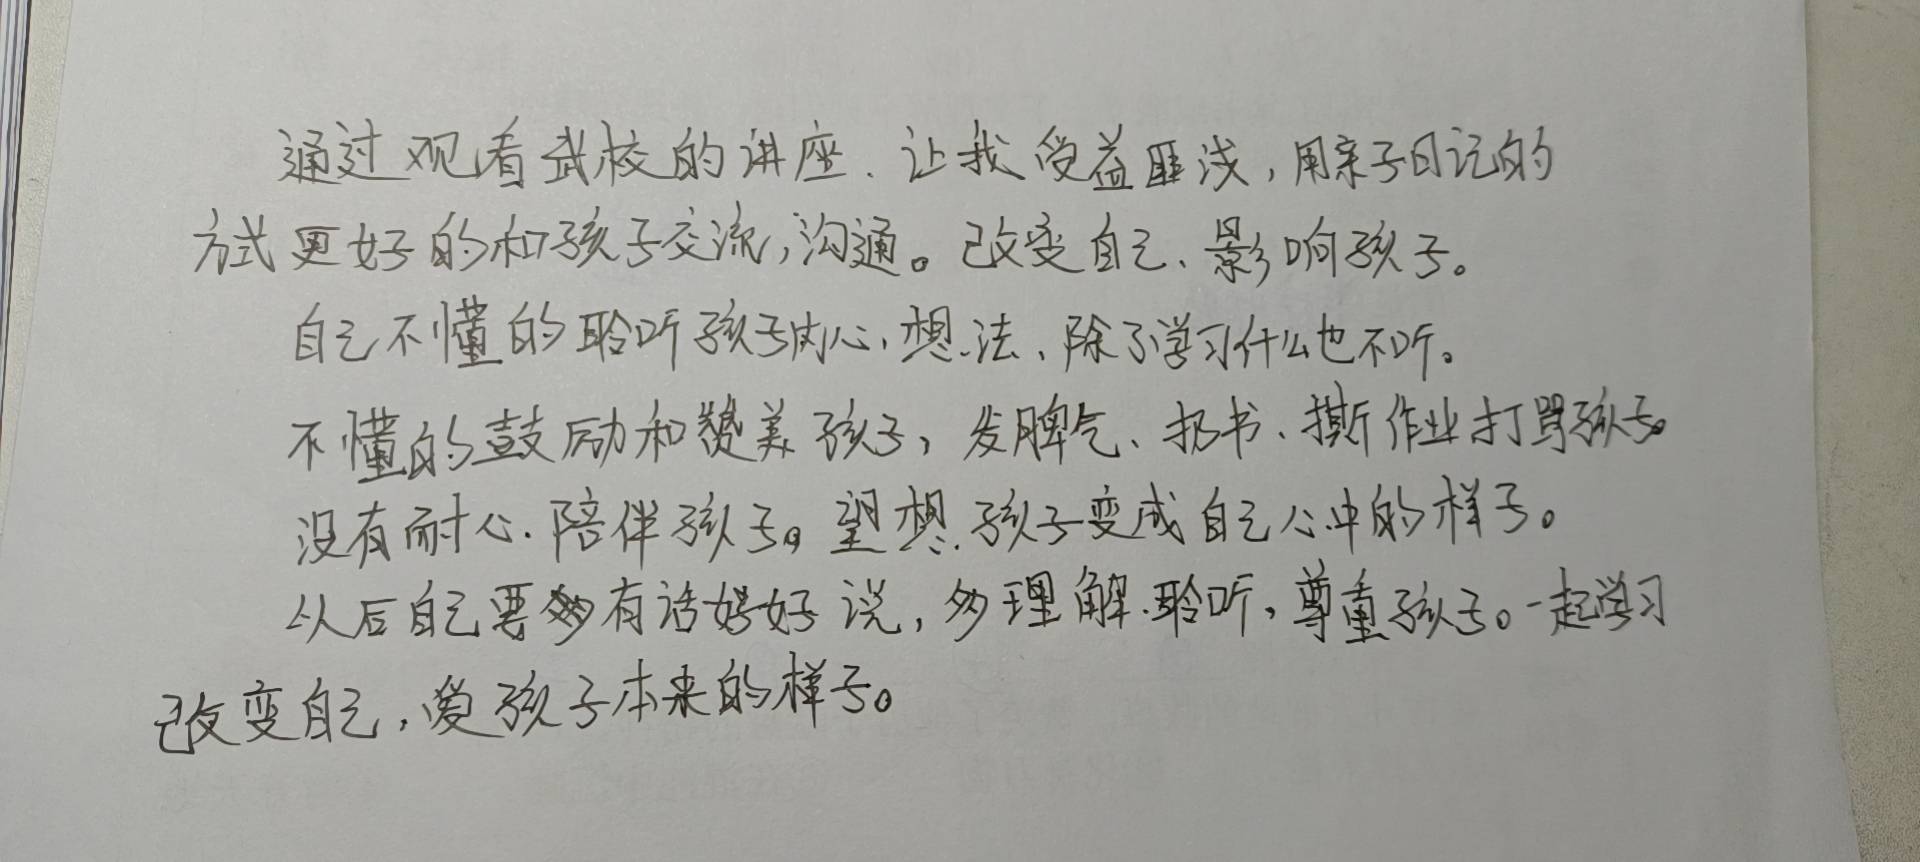 通过观看武校的讲座、让我受益匪浅，用亲子日记的
方式更好的和孩子交流，沟通。改变自己、影响孩子。
自己不懂的聆听孩子内心，想法、除了学习什么也不听。
不懂的鼓励和赞美孩子，发脾气、扔书、撕作业打骂孩子。
没有耐心、陪伴孩子。望想孩子变成自己心中的样子。
从后自己要多有话好好说，多理解、聆听，尊重孩子。一起学习
改变自己，爱孩子本来的样子。